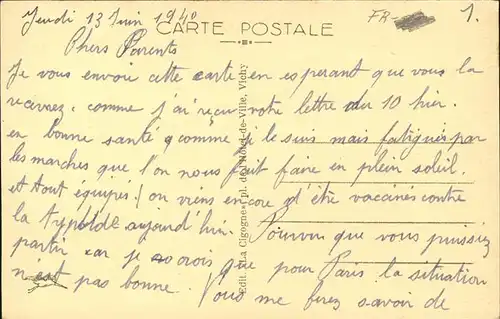 Jeudi 13 Juin 1940
FR-
1.
CARTE POSTALE
Chers Parents
Je vous envoie cette carte en esperant que vous la
recevrez. comme j'ai reçu votre lettre du 10 hier.
en bonne santé comme je le suis mais fatigués par
les marches que l'on nous fait faire en plein soleil.
et tout équipés! on viens encore d'être vaccinés contre
la typhoïde aujourd'hui. Pourvu que vous puissiez
partir car je crois que pour Paris la situation
n'est pas bonne. Vous me ferez savoir de
Edit. «La Cigogne» pl. de l'Hôtel-de-Ville, Vichy